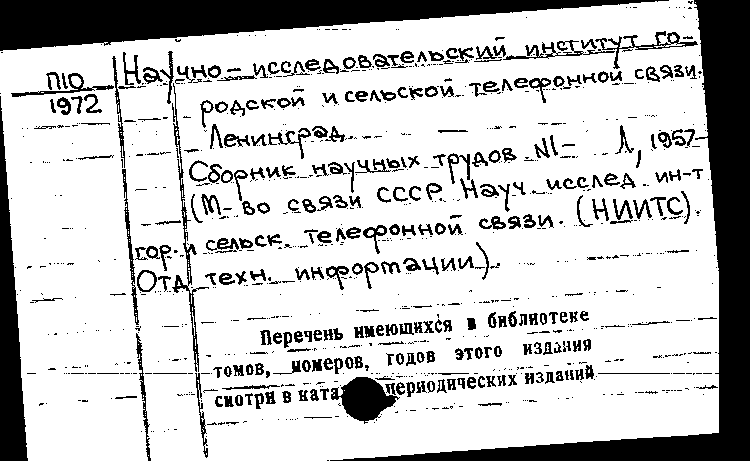 П10
1972
Научно-исследовательский институт го-
родской и сельской телефонной связи.
Ленинград
Сборник научных трудов N1- Л, 1957-
(М-во связи СССР. Науч. исслед. ин-т
гор. и сельск. телефонной связи. (НИИТС).
Отд техн. информации).
Перечень имеющихся в библиотеке
томов, номеров, годов этого издания
смотри в ката периодических изданий